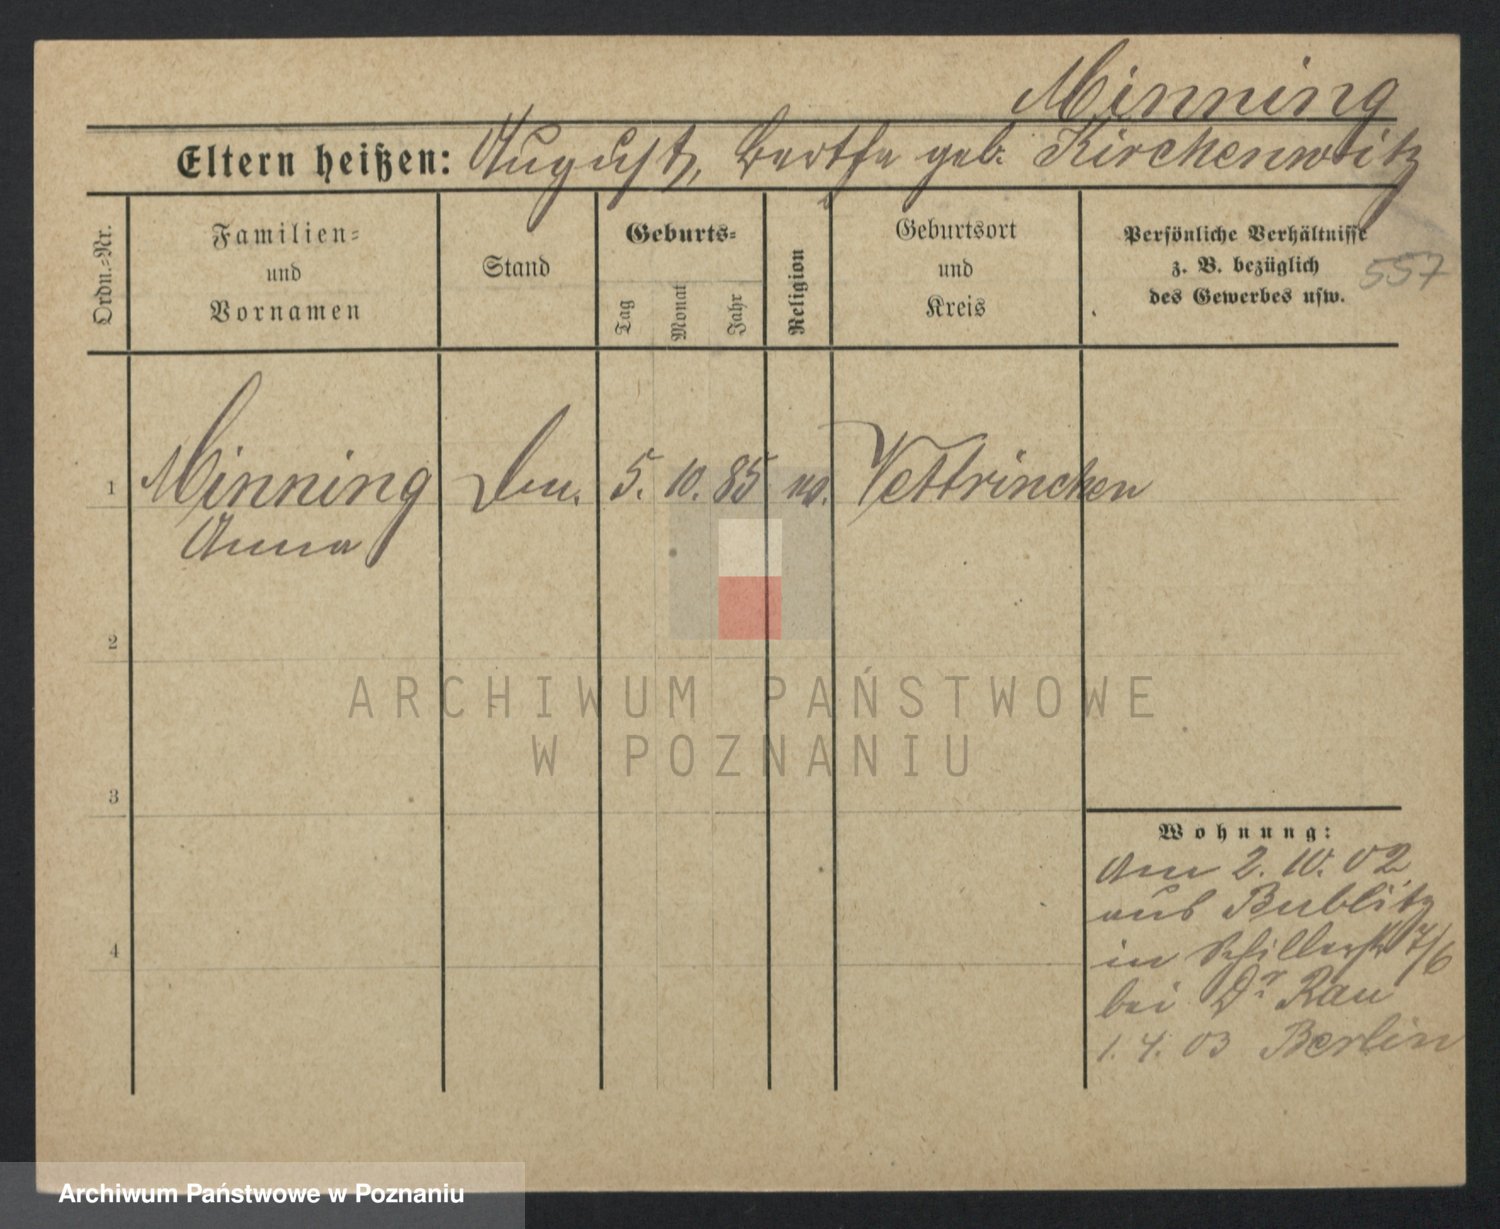 Minning
Eltern heißen: August, Bertha geb. Kirchenwitz
Ordn.-Nr.
Familien- und Vornamen
Stand
Geburts-
Tag
Monat
Jahr
Religion
Geburtsort und Kreis
Persönliche Verhältnisse
z. B. bezüglich
des Gewerbes usw.
557
1 Minning 5. 10. 85 Vettrinchen
Anna
2
3
4
Wohnung:
Am 2. 10. 02
aus Bublitz
in Schillerstr
bei Dr Rau
1. 4. 03 Berlin
ARCHIWUM PAŃSTWOWE
W POZNANIU
Archiwum Państwowe w Poznaniu